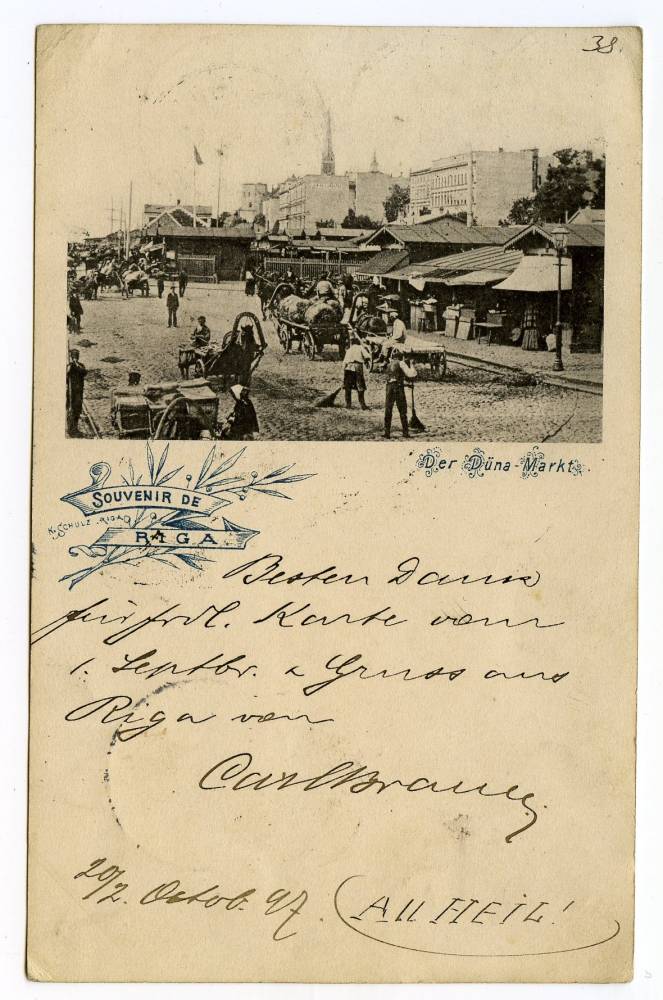 38.
Der Düna-Markt
SOUVENIR DE
K. SCHULZ RIGA
RIGA
Besten Dank
für frdl. Karte vom
1. Septbr. & Gruss aus
Riga von
Carl
20/2. Octob. 97.
All HEIL!